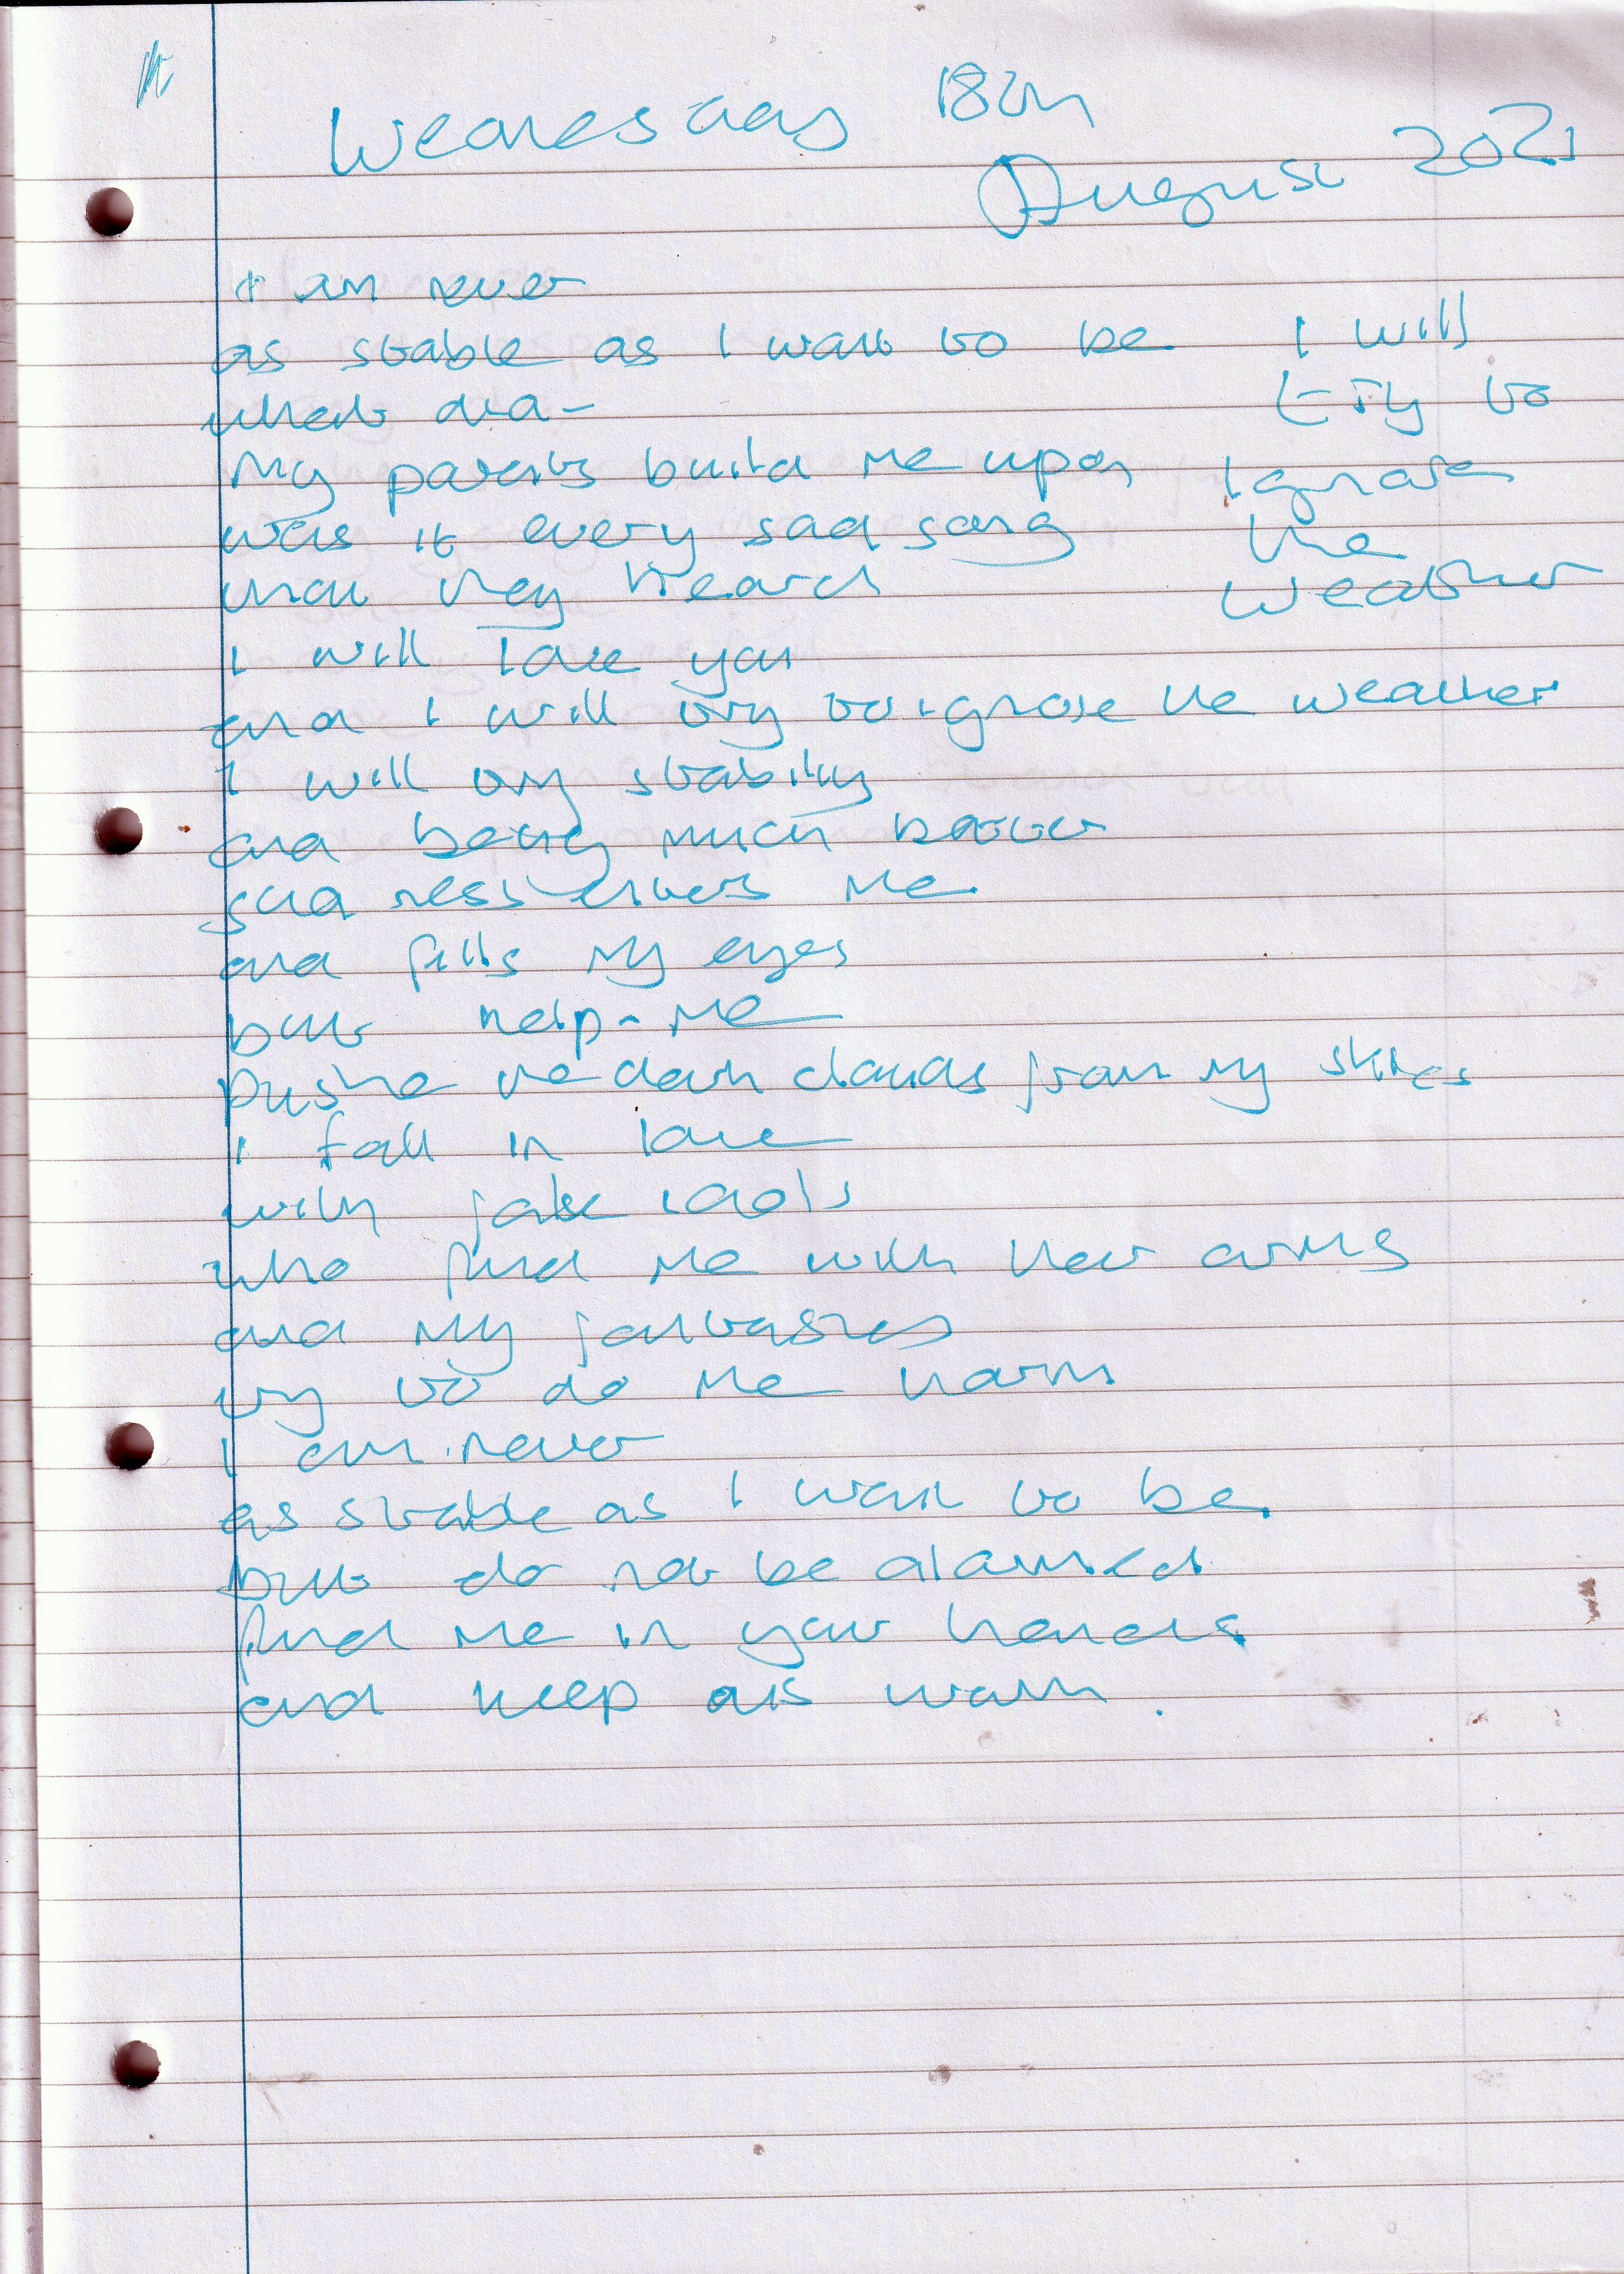 Wednesday 18th
August 2021
I am never
as stable as I want to be
what did -
My parents build me upon
was it every sad song
that they heard
I will love you
and I will try to ignore the weather
I will try stability
and being much better
sadness enters me
and fills my eyes
but help - me
push the dark clouds from my skies
I fall in love
with false idols
who find me with their arms
and my fantasies
try to do me harm
I am never
as stable as I want to be.
but do not be alarmed
find me in your hands
and keep us warm.
I will
try to
ignore
the
weather